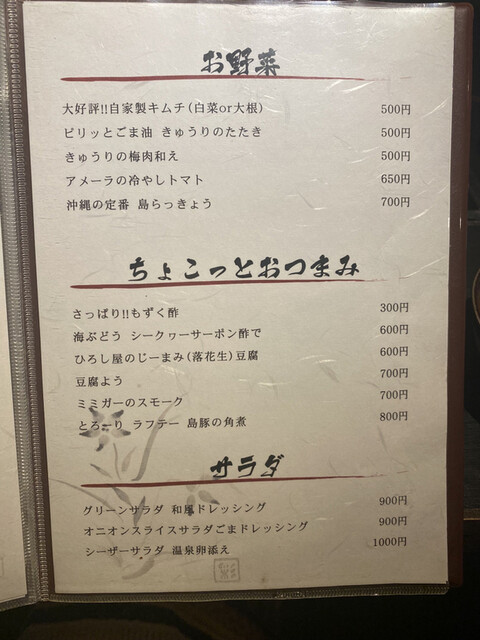 お野菜
大好評!!自家製キムチ(白菜or大根) 500円
ピリッとごま油 きゅうりのたたき 500円
きゅうりの梅肉和え 500円
アメーラの冷やしトマト 650円
沖縄の定番 島らっきょう 700円
ちょこっとおつまみ
さっぱり!!もずく酢 300円
海ぶどう シークヮーサーポン酢で 600円
ひろし屋のじーまみ(落花生)豆腐 600円
豆腐よう 700円
ミミガーのスモーク 700円
とろーり ラフテー 島豚の角煮 800円
サラダ
グリーンサラダ 和風ドレッシング 900円
オニオンスライスサラダごまドレッシング 900円
シーザーサラダ 温泉卵添え 1000円